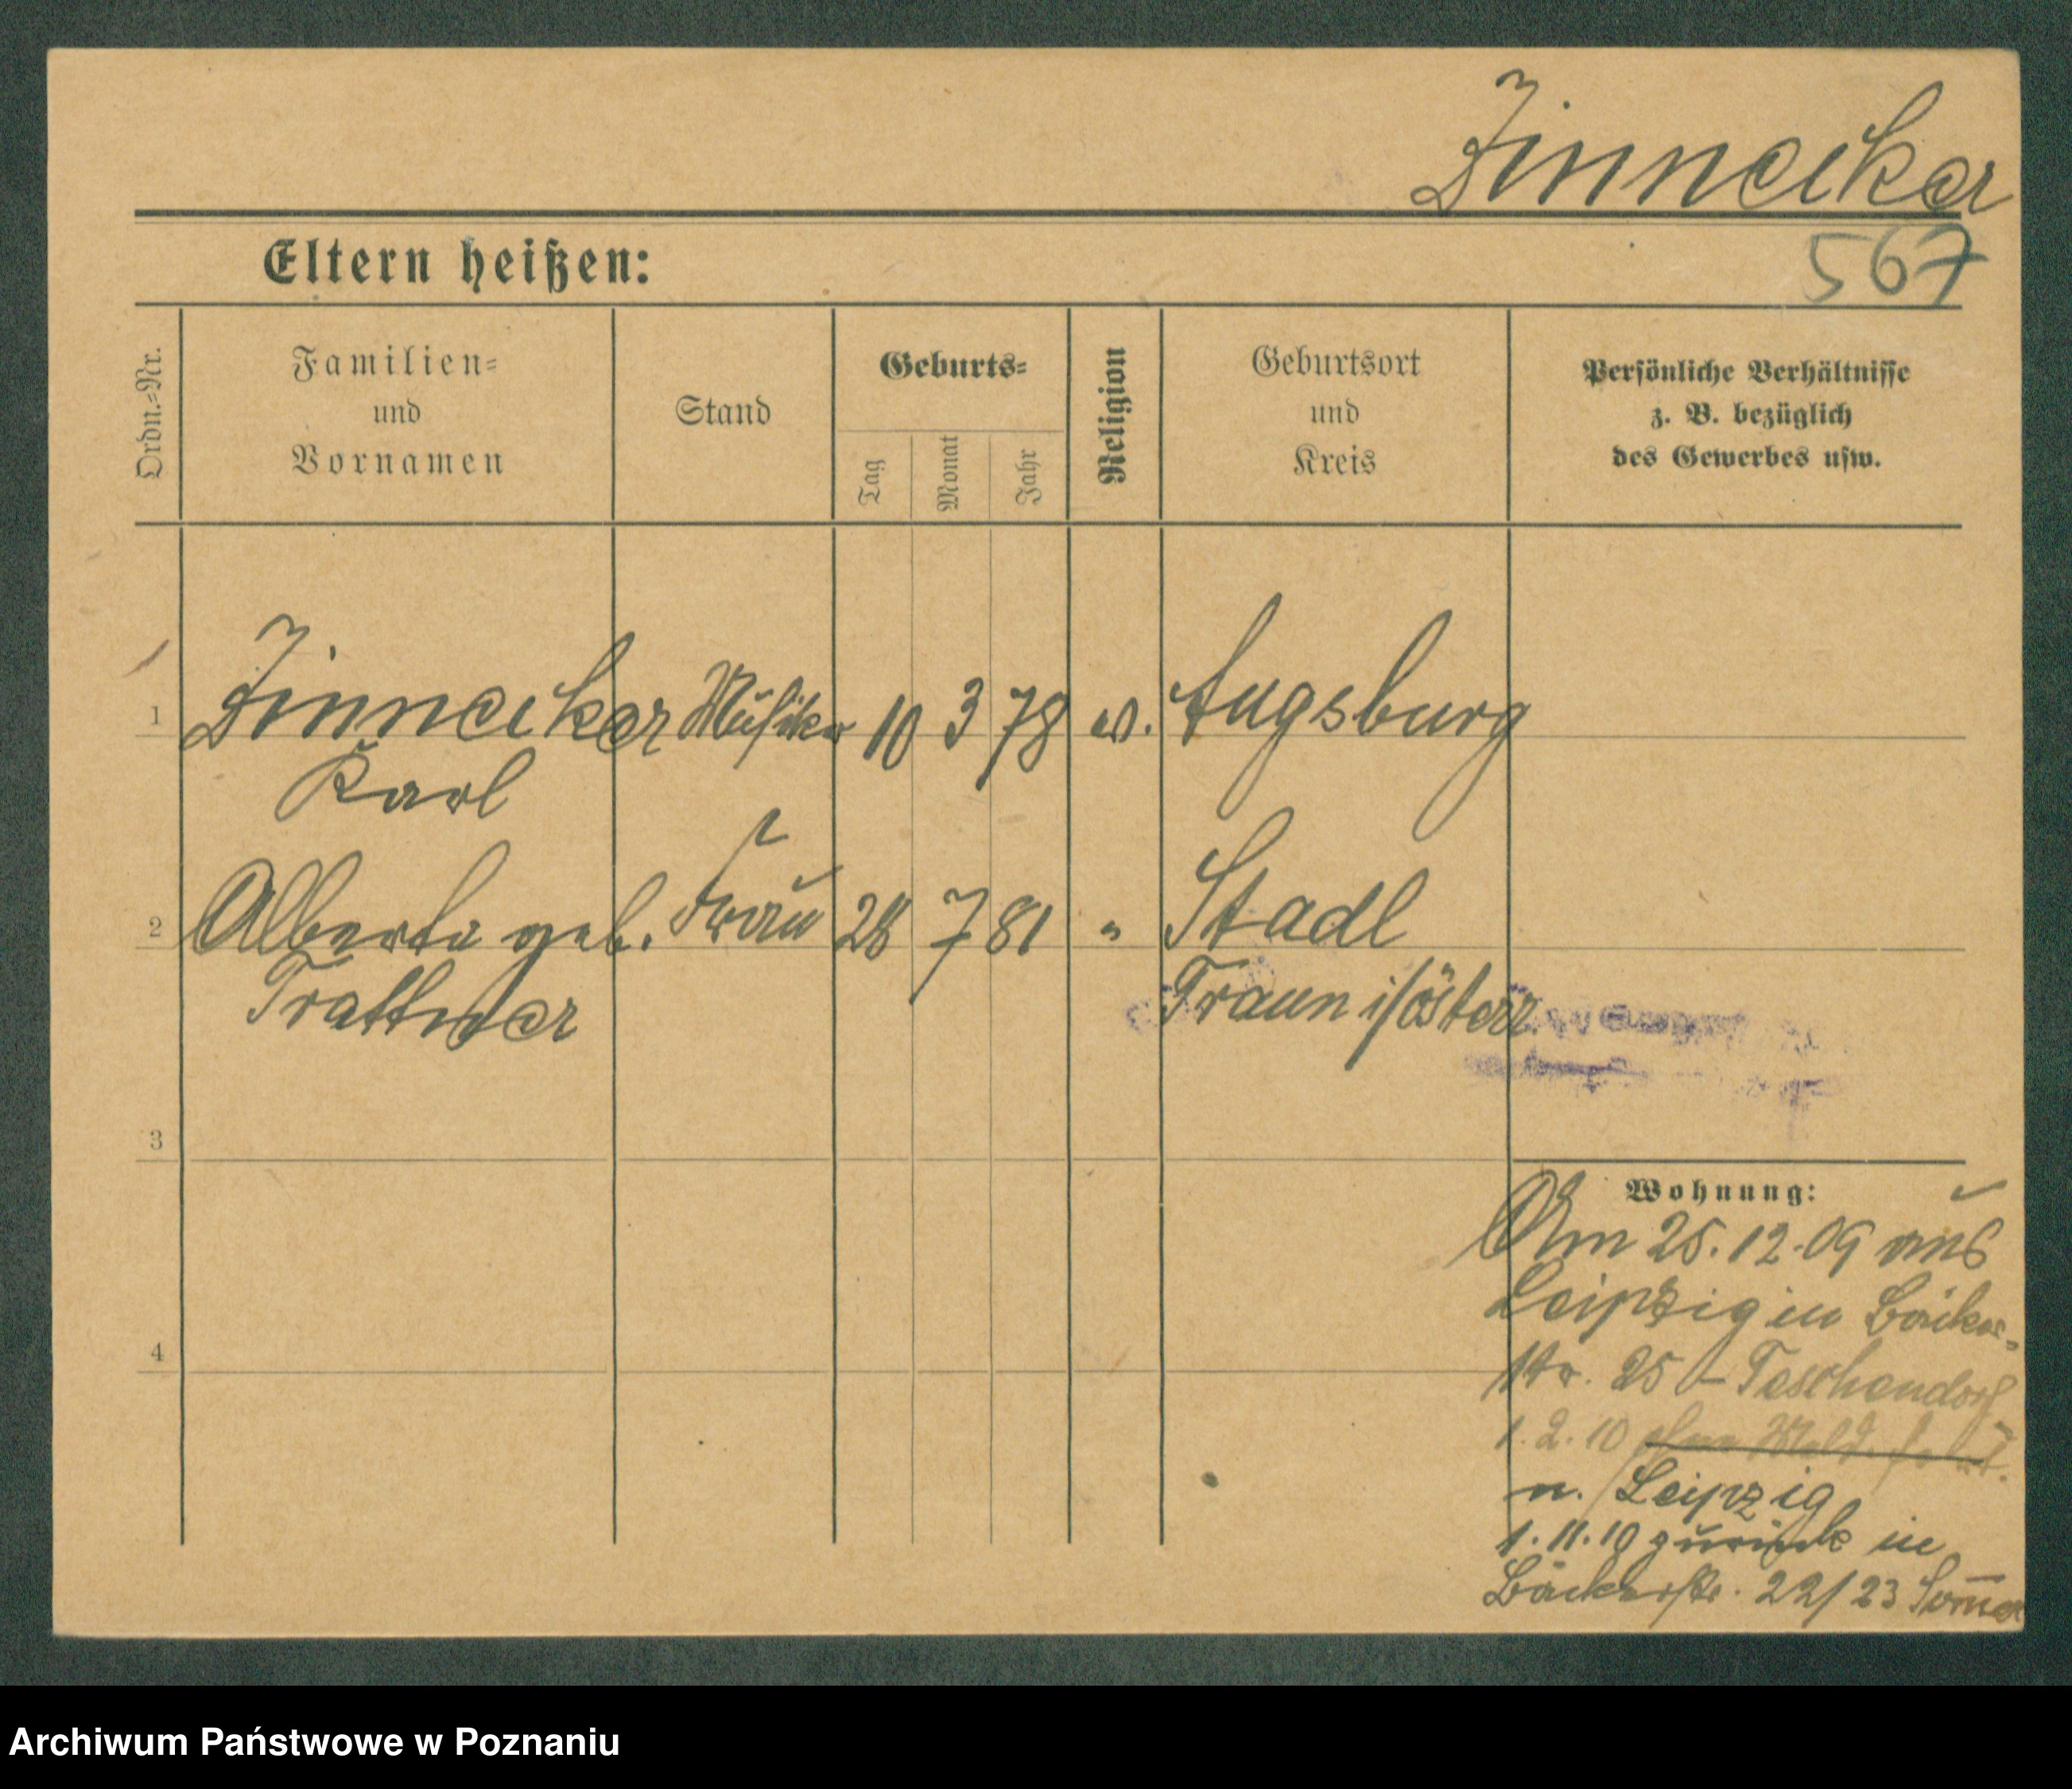 Zinnecker
567
Eltern heißen:
Ordn.-Nr.
Familien-
und
Vornamen
Stand
Geburts-
Tag
Monat
Jahr
Religion
Geburtsort
und
Kreis
Persönliche Verhältnisse
z. B. bezüglich
des Gewerbes usw.
1 Zinnecker Musiker 10 3 78 ev. Augsburg
Karl
2 Alberta geb. Frau 28 7 81 " Stadl
Trattner Traun i/österr
3
Wohnung:
Am 25.12.09 aus
Leipzig in Bäcker-
4
str. 25 Taschendorf
1.2.10 ohne Meld.
n. Leipzig
1.11.10 zurück in
Bäckerstr. 22/23 Sommer
Archiwum Państwowe w Poznaniu